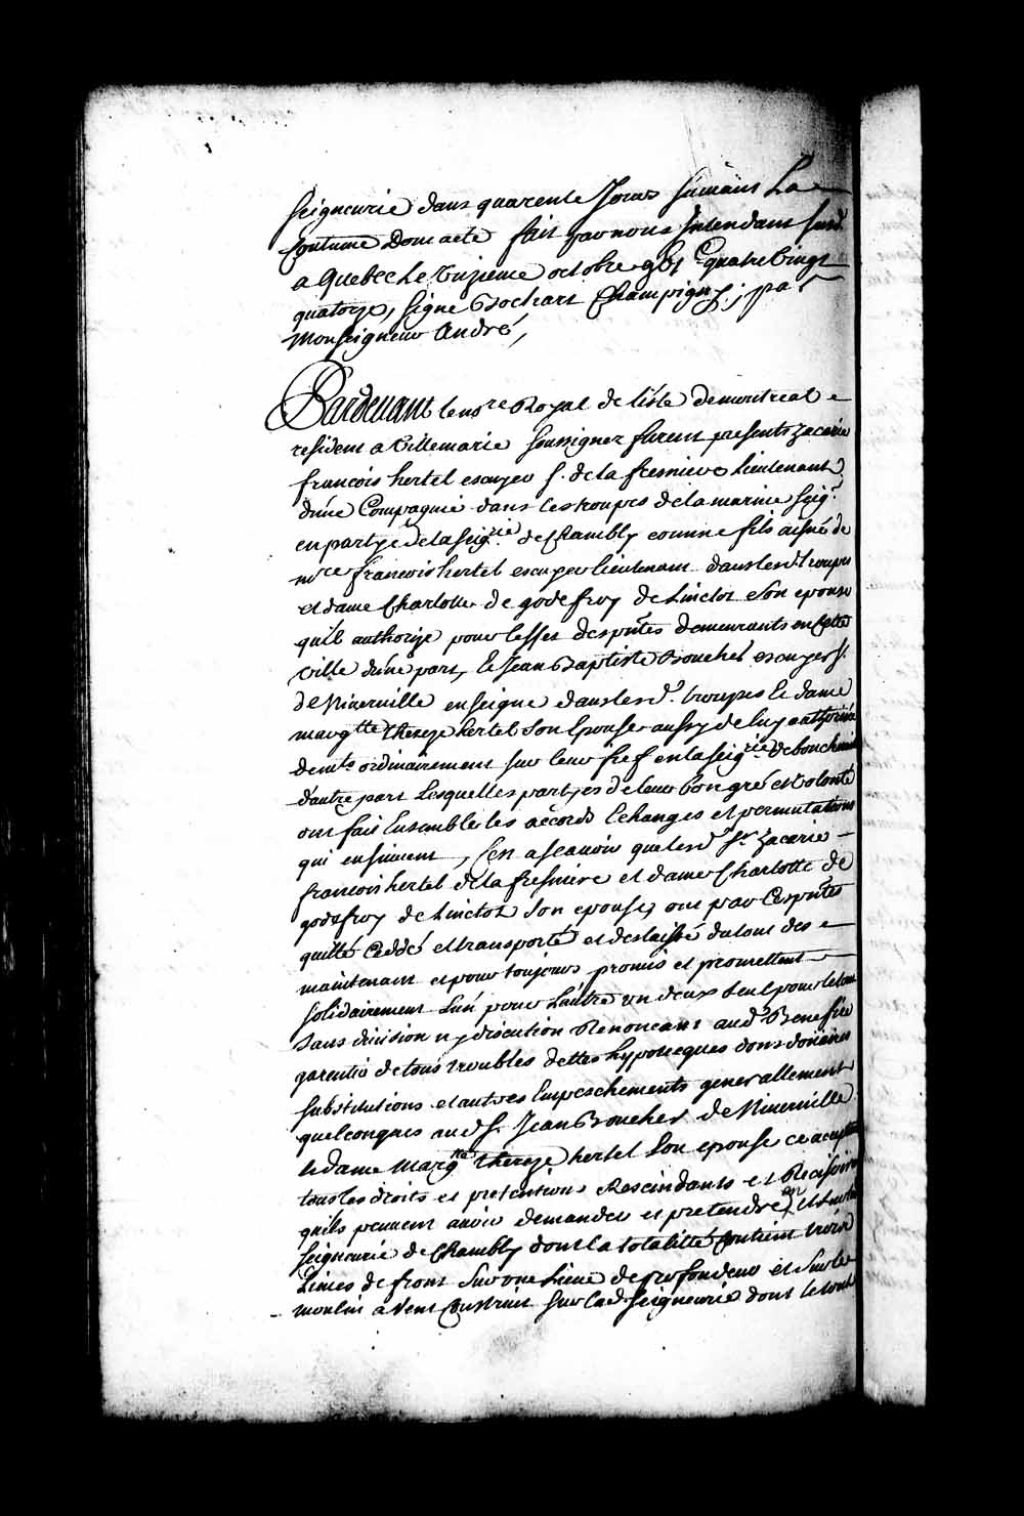 seigneurie dans quarente Jours suivant La
Coutume Dont acte fait par nous Intendant susd.
a Quebec Le unzieme octobre gbi C quatre Vingt
quatorze, signe Bochart Champigny; par
Monseigneur André,
Pardevant le no.re Royal de l'isle de montreal
resident a Villemarie soussigner furent presents Zacarie
francois hertel escuyer s. de la fresniere Lieutenant
d'une Compagnie dans les troupes de la marine seig.r
en partye de la seig.rie de Chambly comme fils aisné de
francois hertel escuyer lieutenant dans lesd. troupes
et dame Charlotte de godefroy de Linctot son epouse
qu'il authorize pour l'effet des pntes demeurants en cette
ville d'une part, & Jean Baptiste Boucher escuyer s.
de Niverville enseigne dans lesd. trouppes & dame
marg.tte Thereze hertel son Epouse aussy de luy authorizée
dem.ts ordinairement sur leur fief en la seig.rie de boucherville
d'autre part Lesquelles partyes de leur bon gré et Volonté
ont fait Ensemble les accords Echanges et permutations
qui ensuivent, C'est ascavoir que lesd. Sr. Zacarie
francois hertel de la fresniere et dame Charlotte de
godefroy de Linctot son epouse, ont par Cespntes
quitté Ceddé et transporté et deslaissé du tout des
maintenant et pour toujours promis et promettent
solidairement L'un pour L'autre un deux seul pour le tout
sans division ny discution Renoncant aud. Benefice
garentir de tous troubles dettes hypotecques dons douaires
substitutions et autres Empeschements generallement
quelconques aud. s. Jean Boucher de Niverville
& dame Marg.te Thereze hertel Son epouse ce acceptant
tous les droits et pretentions Rescindants et Recisoires
qu'ils peuvent avoir demander et pretendre en et sur la
seigneurie de Chambly dont la totalitté Contient trois
Lieues de front sur une Lieue de profondeur et sur le
moulin a Vent Construit sur lad. seigneurie dont le tout